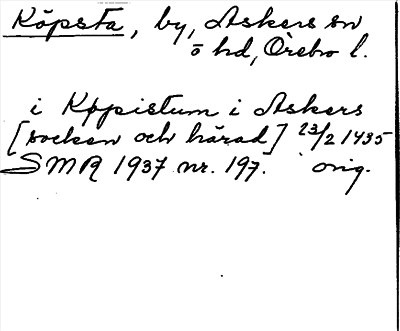 Köpsta, by, Askers sn
ö hd, Örebro l.
i Køpistum i Askers
[socken och härad] 23/2 1435
SMR 1937 nr. 197. orig.